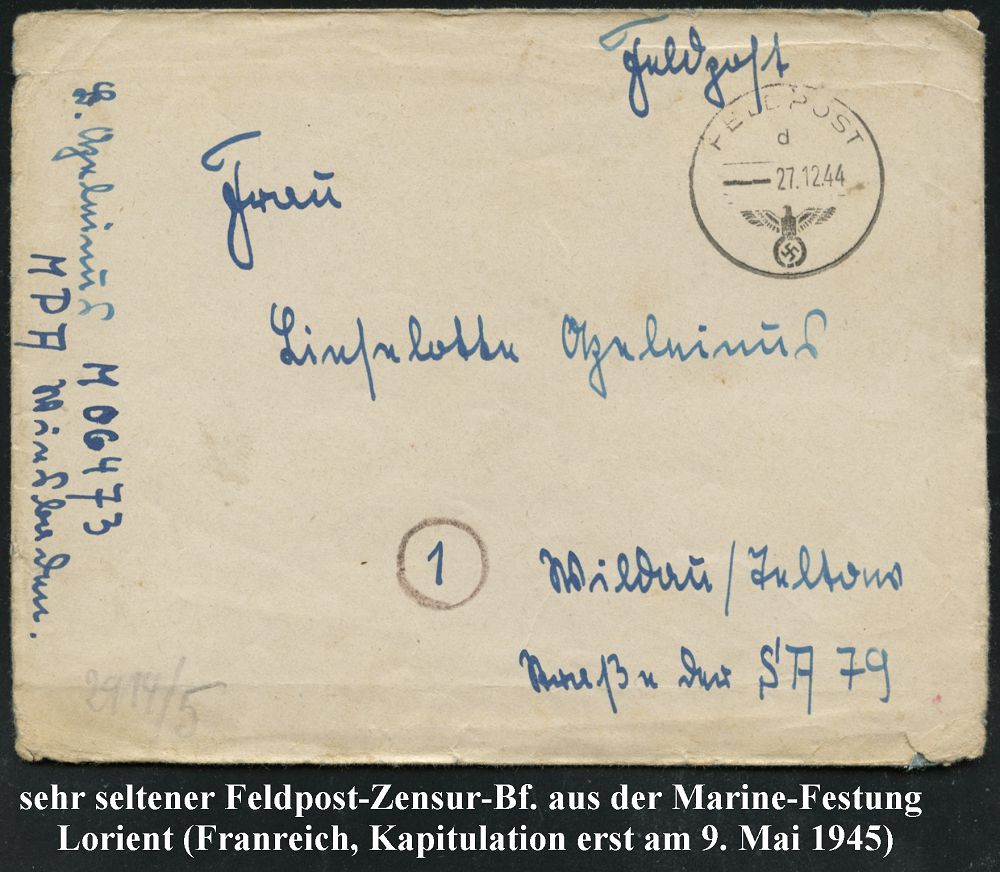 Feldpost
FELDPOST
d
27.12.44
Frau
Lieselotte
1
Wildau/Teltow
Straße der SA 79
M 06473
MPA Wiesbaden.
2914/5
sehr seltener Feldpost-Zensur-Bf. aus der Marine-Festung
Lorient (Franreich, Kapitulation erst am 9. Mai 1945)